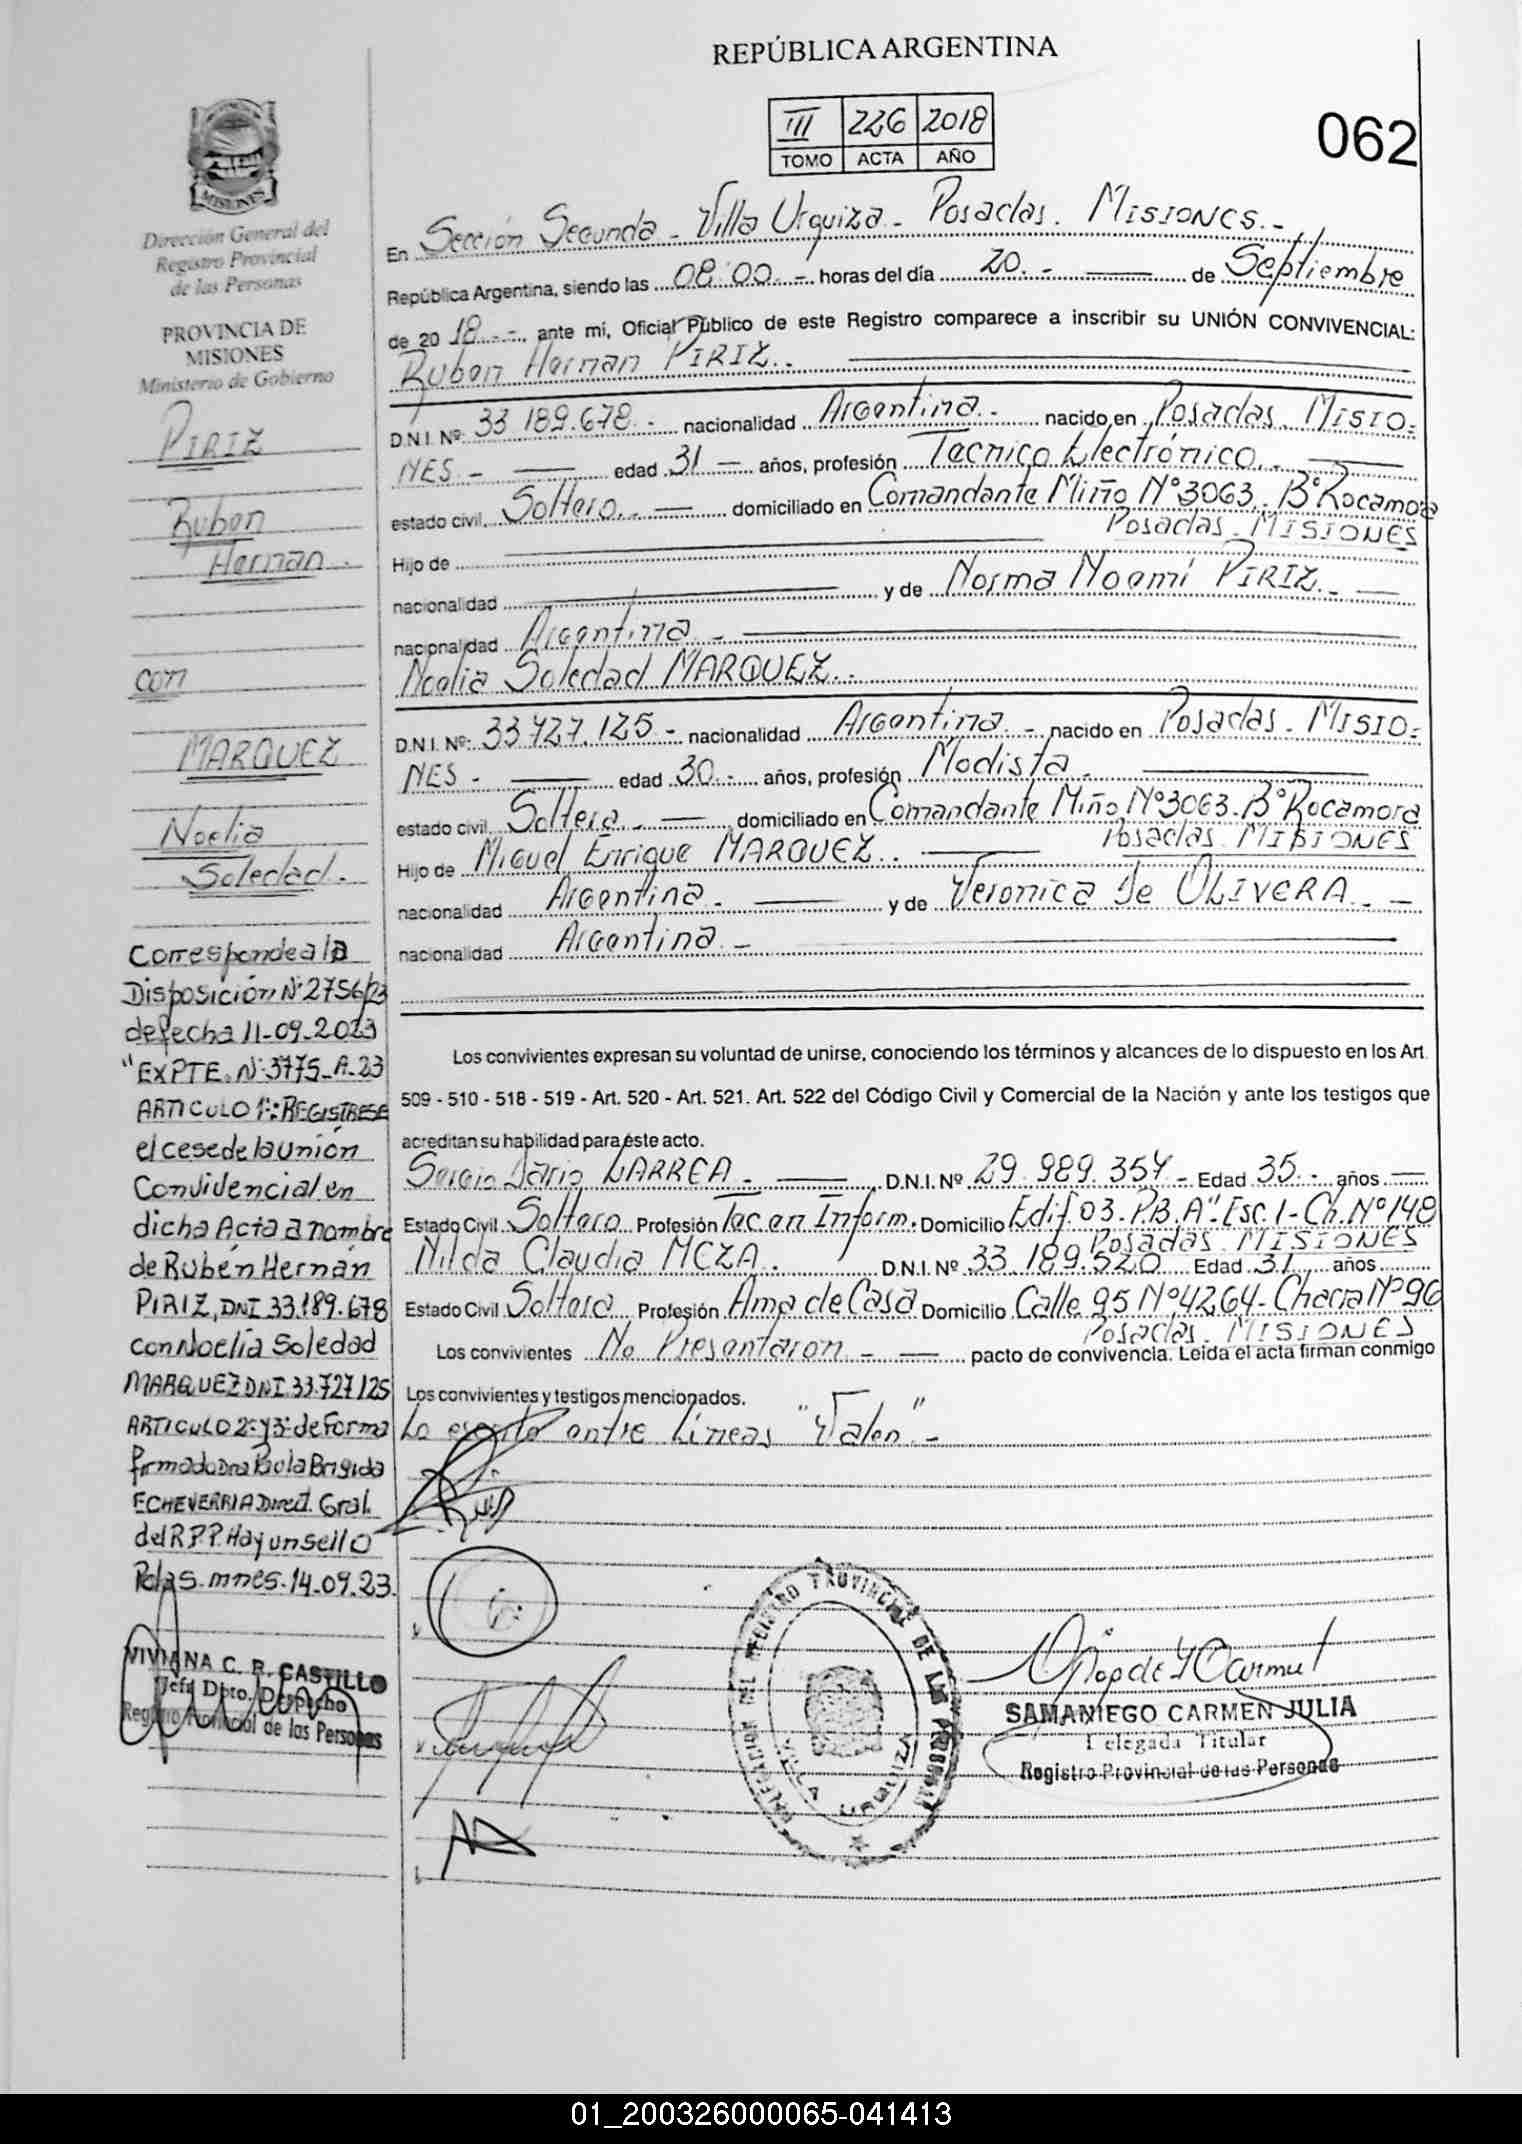 REPÚBLICA ARGENTINA
III 226 2018
TOMO ACTA AÑO
062
MISIONES
Dirección General del
Registro Provincial
de las Personas
PROVINCIA DE
MISIONES
Ministerio de Gobierno
PIRIZ
Ruben
Hernan.
con
MARQUEZ
Noelia
Soledad.
Corresponde a la
Disposición N° 2756/23
de fecha 11-09-2023
"EXPTE. N° 3775-A-23
ARTICULO 1°: REGISTRESE
el cese de la unión
Convivencial en
dicha Acta a nombre
de Rubén Hernán
PIRIZ, DNI 33.189.678
con Noelia Soledad
MARQUEZ DNI 33.727125
ARTICULO 2° y 3° de Forma
firmado Dra Paola Brigida
ECHEVERRIA Direct. Gral.
del R.P.P. Hay un sello
Pdas. mnes. 14-09-23.
VIVIANA C. R. CASTILLO
Jefa Dpto. Despacho
Registro Provincial de las Personas
En Sección Segunda - Villa Urquiza - Posadas. MISIONES.-
República Argentina, siendo las 08:00.- horas del día 20.- de Septiembre
de 2018.-, ante mí, Oficial Público de este Registro comparece a inscribir su UNIÓN CONVIVENCIAL:
Ruben Hernan PIRIZ..
D.N.I. Nº: 33 189.678.- nacionalidad Argentina.- nacido en Posadas. MISIO-
NES.- edad 31 - años, profesión Tecnico Electrónico..
estado civil Soltero.. domiciliado en Comandante Miño N°3063. B° Rocamora
Posadas. MISIONES
Hijo de
nacionalidad y de Norma Noemí PIRIZ..-
nacionalidad Argentina -
Noelia Soledad MARQUEZ..
D.N.I. Nº: 33.727.125 - nacionalidad Argentina.- nacido en Posadas. MISIO-
NES - edad 30.- años, profesión Modista.
estado civil Soltera.- domiciliado en Comandante Miño N°3063. B° Rocamora
Posadas. MISIONES
Hijo de Miguel Enrique MARQUEZ..
nacionalidad Argentina.- y de Veronica De OLIVERA..-
nacionalidad Argentina.-
Los convivientes expresan su voluntad de unirse, conociendo los términos y alcances de lo dispuesto en los Art.
509 - 510 - 518 - 519 - Art. 520 - Art. 521. Art. 522 del Código Civil y Comercial de la Nación y ante los testigos que
acreditan su habilidad para éste acto.
Sergio Dario LARREA.- D.N.I. Nº 29.989.357 - Edad 35.- años
Estado Civil Soltero Profesión Tec en Inform. Domicilio Edif 03-P.B."A"-Esc.1-Ch.N°148
Posadas. MISIONES
Nilda Claudia MEZA. D.N.I. Nº 33.189.520 Edad 31 años
Estado Civil Soltera Profesión Ama de Casa Domicilio Calle 95 N°4264-Chacra N°96
Posadas. MISIONES
Los convivientes No Presentaron.- pacto de convivencia. Leída el acta firman conmigo
Los convivientes y testigos mencionados.
Lo escrito entre Lineas "Valen".-
DELEGACION DEL REGISTRO PROVINCIAL DE LAS PERSONAS
VILLA URQUIZA
SAMANIEGO CARMEN JULIA
Delegada Titular
Registro Provincial de las Personas
01_200326000065-041413